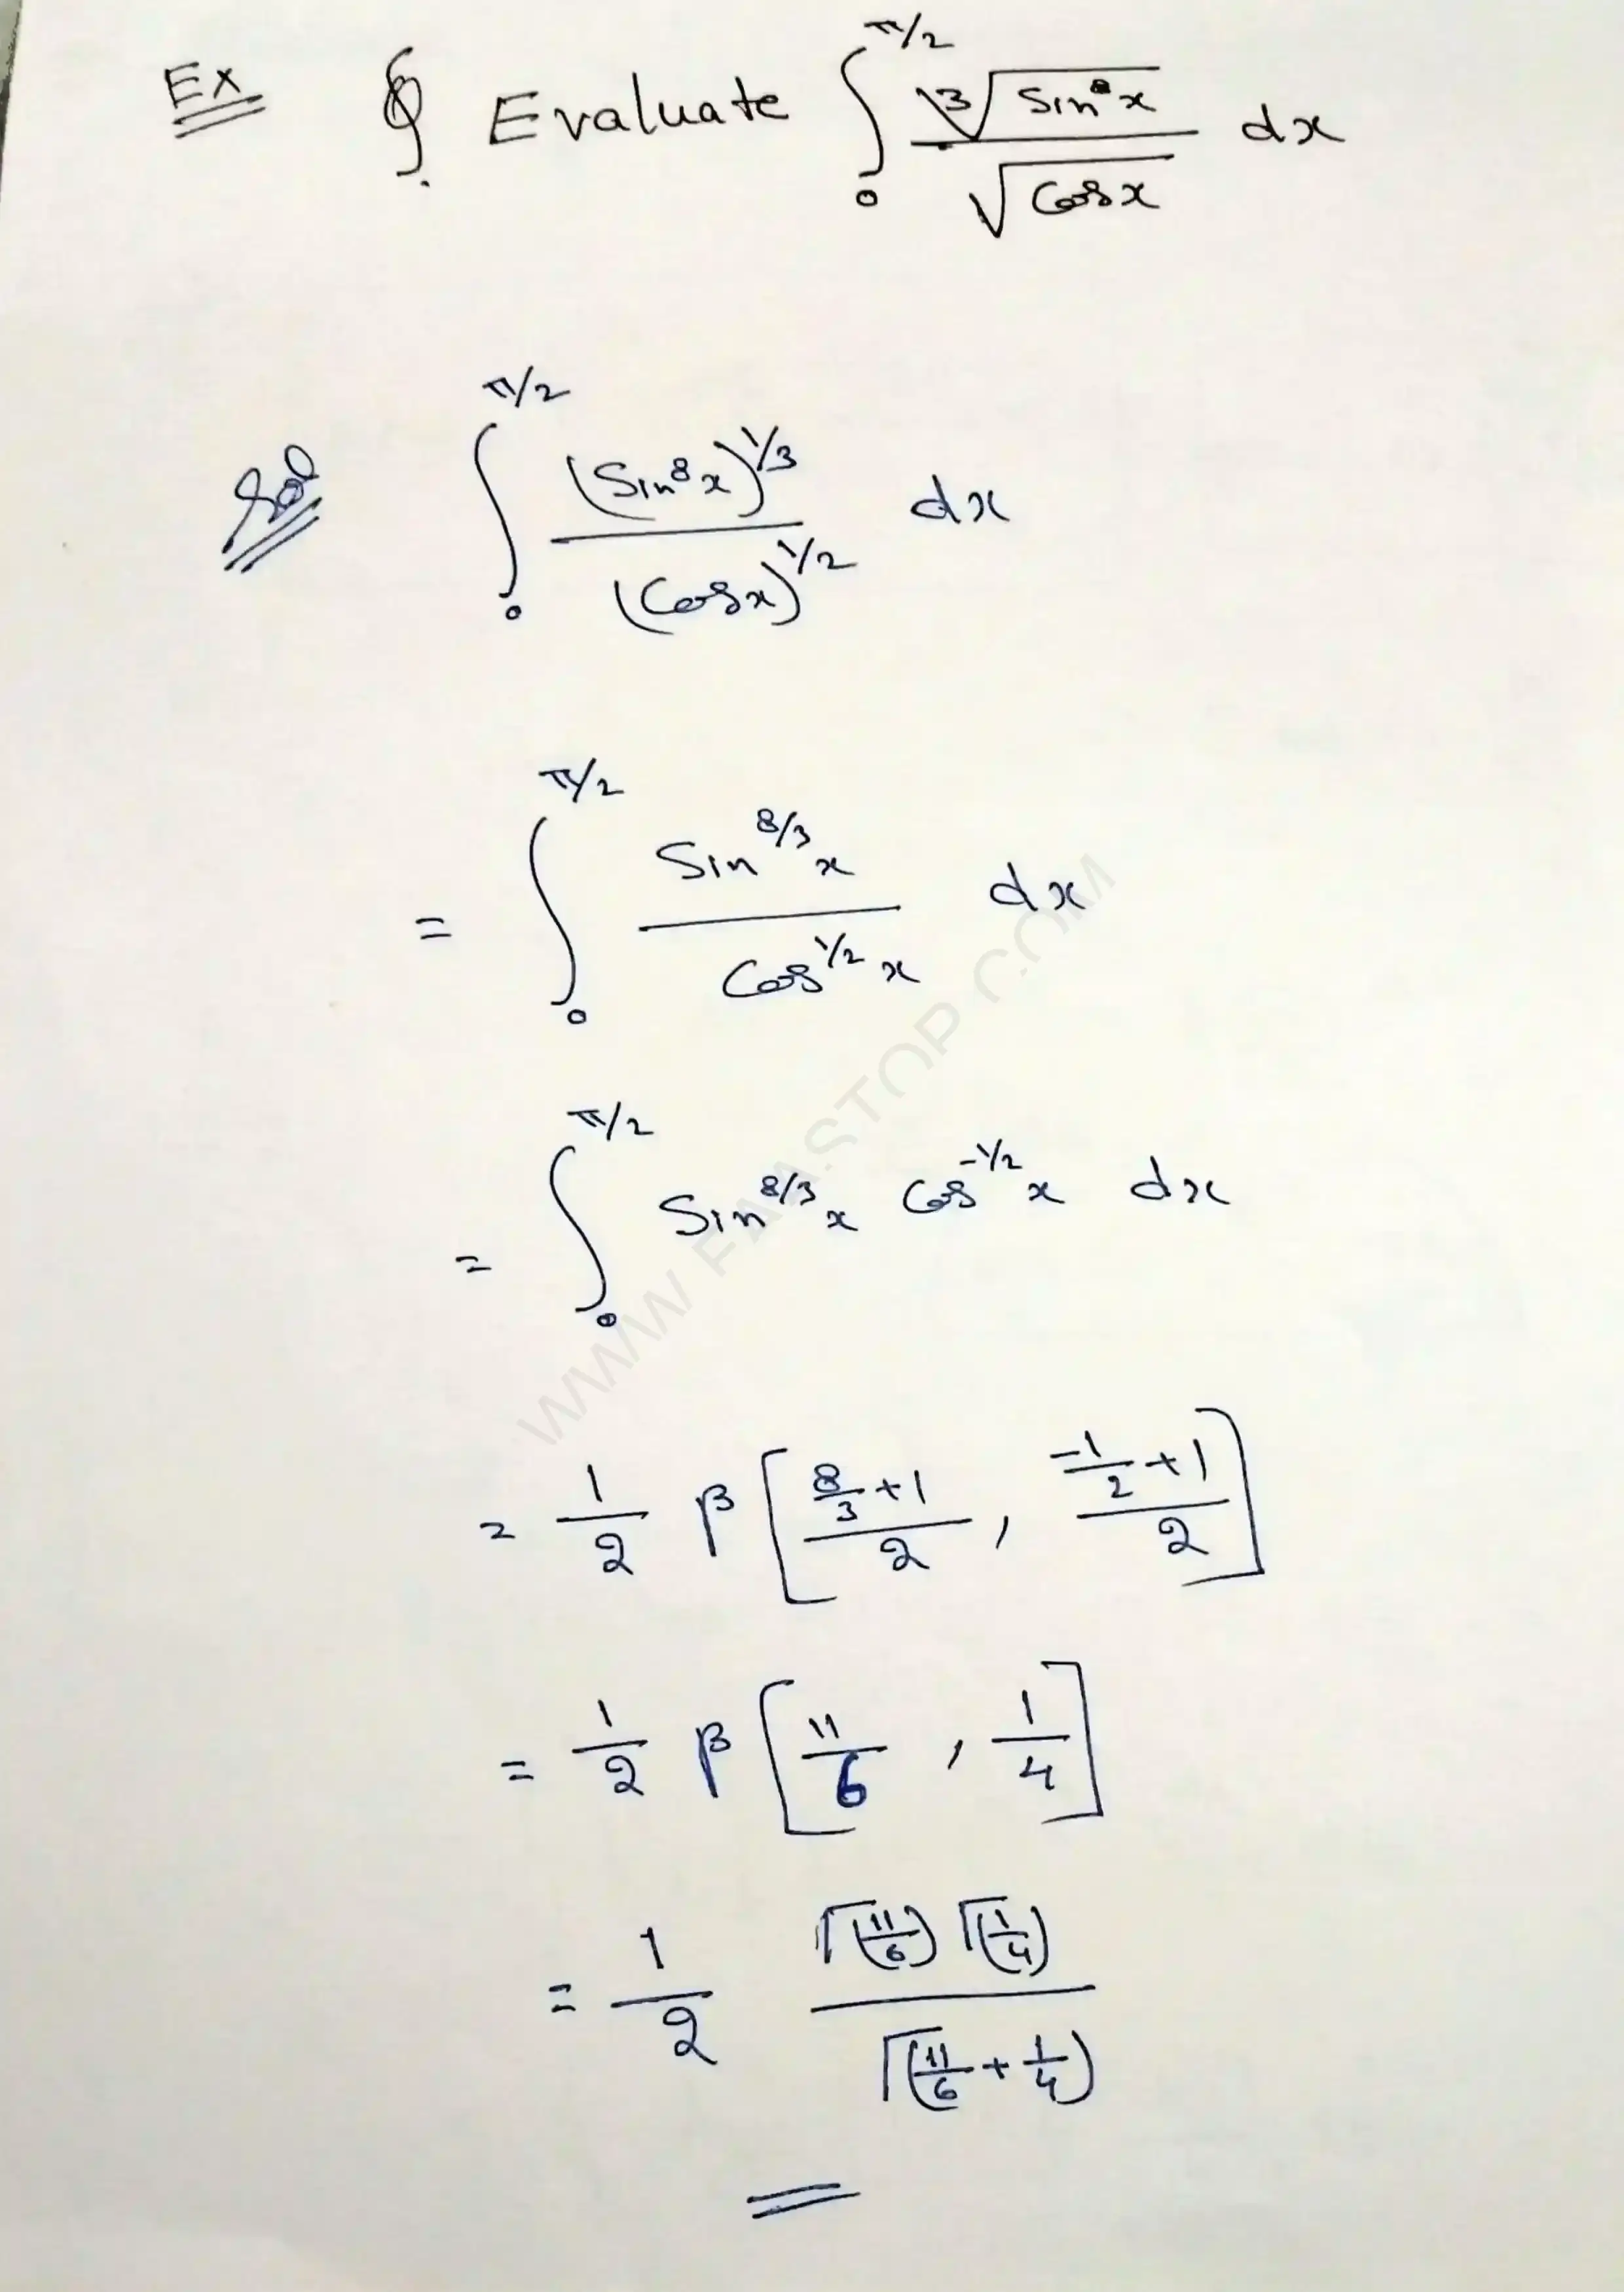 Ex Evaluate ∫₀^{π/2} ∛(Sin⁸x) / √(Cosx) dx
Sol ∫₀^{π/2} (Sin⁸x)^{1/3} / (Cosx)^{1/2} dx
= ∫₀^{π/2} Sin^{8/3}x / Cos^{1/2}x dx
= ∫₀^{π/2} Sin^{8/3}x Cos^{-1/2}x dx
= 1/2 β[(8/3+1)/2, (-1/2+1)/2]
= 1/2 β[11/6, 1/4]
= 1/2 Γ(11/6) Γ(1/4) / Γ(11/6 + 1/4)
WWW.FAASTOP.COM